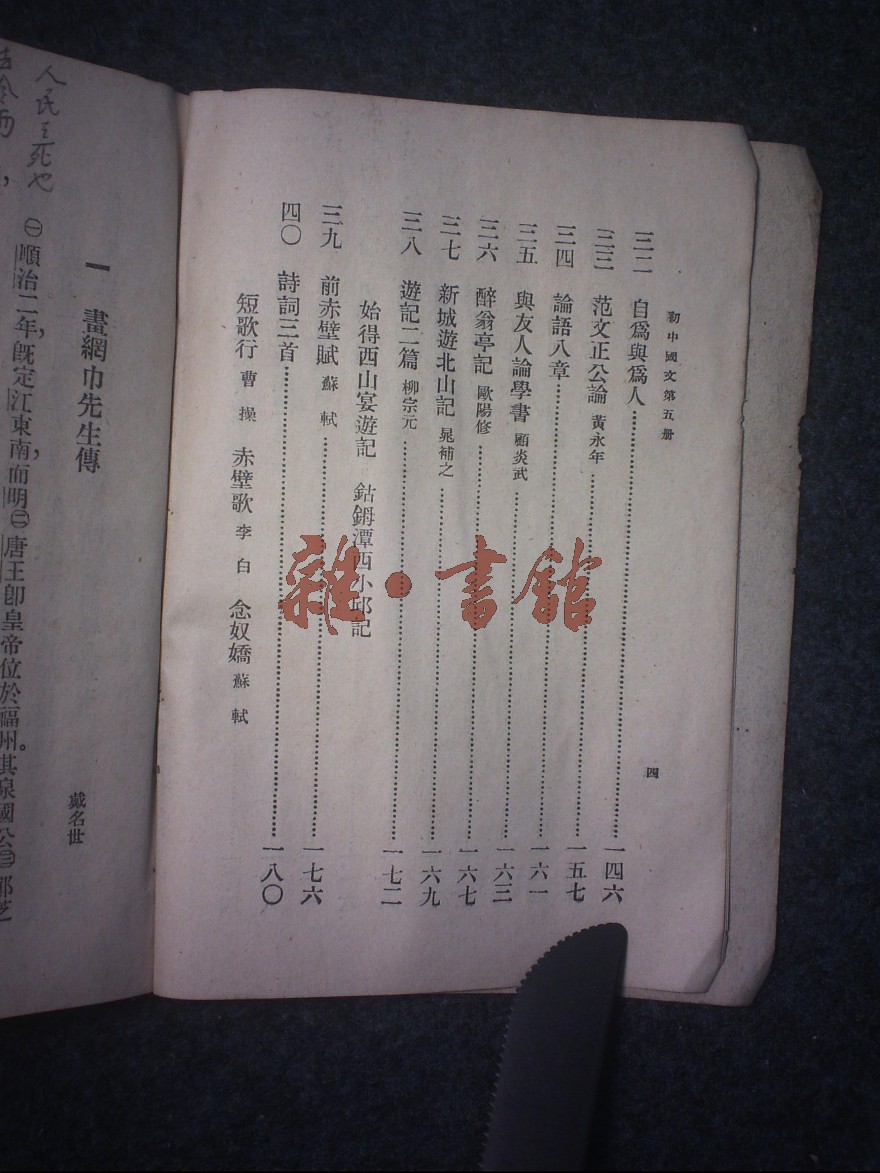 初中國文第五册
四
三二 自爲與爲人………一四六
三三 范文正公論 黃永年………一五七
三四 論語八章………一六一
三五 與友人論學書 顧炎武………一六三
三六 醉翁亭記 歐陽修………一六七
三七 新城遊北山記 晁補之………一六九
三八 遊記二篇 柳宗元………一七二
始得西山宴遊記 鈷鉧潭西小邱記
三九 前赤壁賦 蘇軾………一七六
四〇 詩詞三首………一八〇
短歌行 曹操 赤壁歌 李白 念奴嬌 蘇軾
雜·書館
一 畫網巾先生傳
戴名世
㊀順治二年，旣定江東南，而明㊁唐王卽皇帝位於福州。其泉國公㊂鄭芝
人民之死也